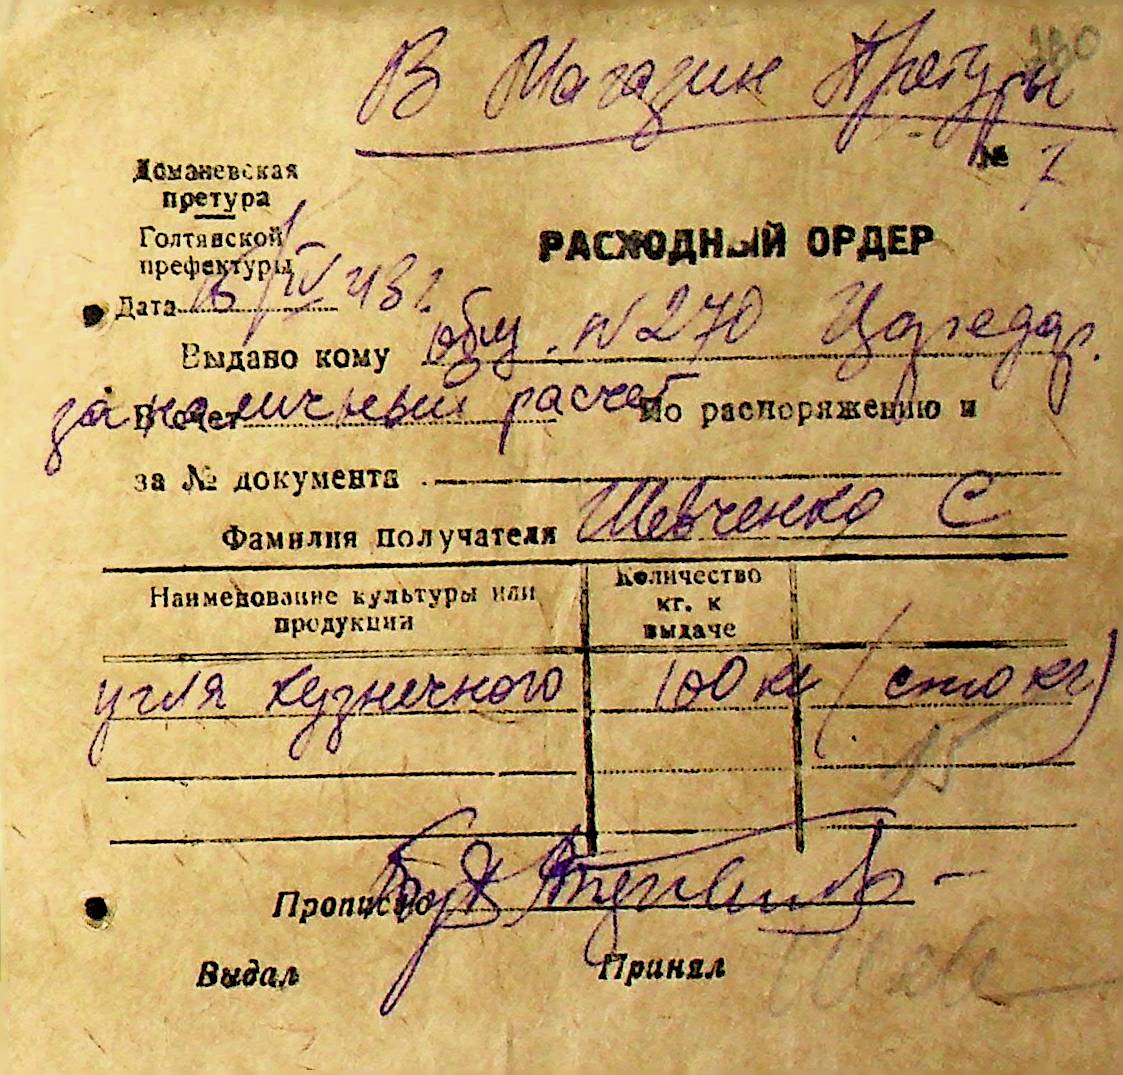 180
В Магазин Претуры
№ 7
Доманевская
претура
Голтянской
префектуры
РАСХОДНЫЙ ОРДЕР
Дата IV 43 г.
Выдано кому общ. N 270
В счет за наличный расчет По распоряжению и
за № документа
Фамилия получателя Шевченко С
Наименование культуры или
продукции
Количество
кг. к
выдаче
угля кузнечного 100 кг (сто кг)
15
Прописью
Выдал Принял Шев